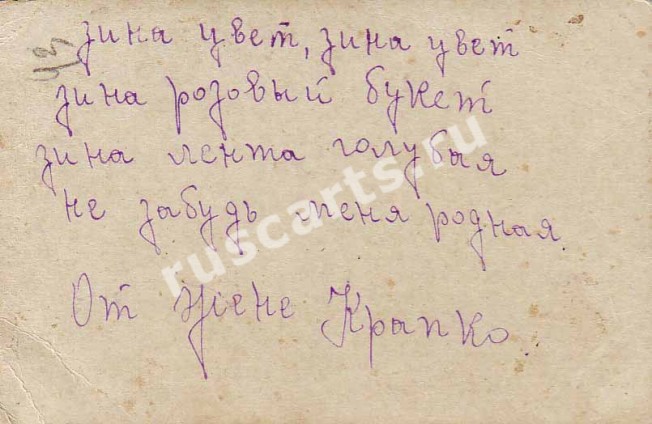 зина цвет, зина цвет
зина розовый букет
зина лента голубыя
не забудь меня родная.
От Крапко.
ruscarts.ru